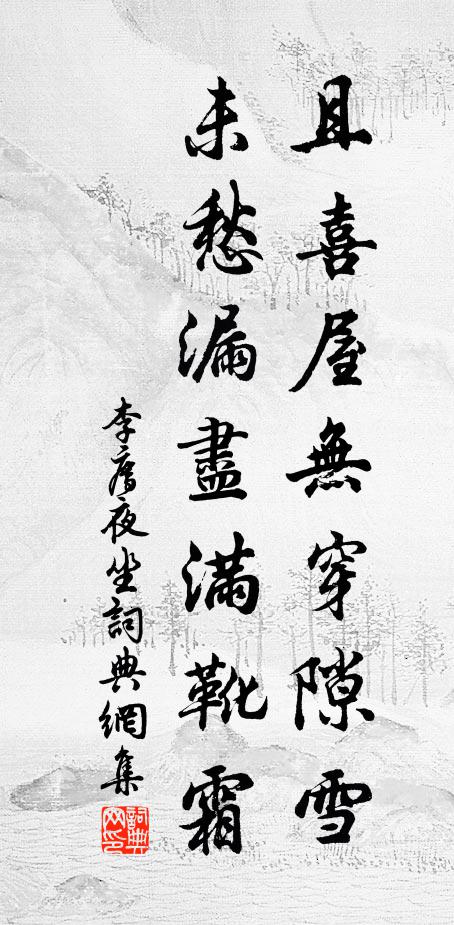 且喜屋無穿隙雪
未愁漏盡滿靴霜
李廌夜坐詞典網集
詞典網印